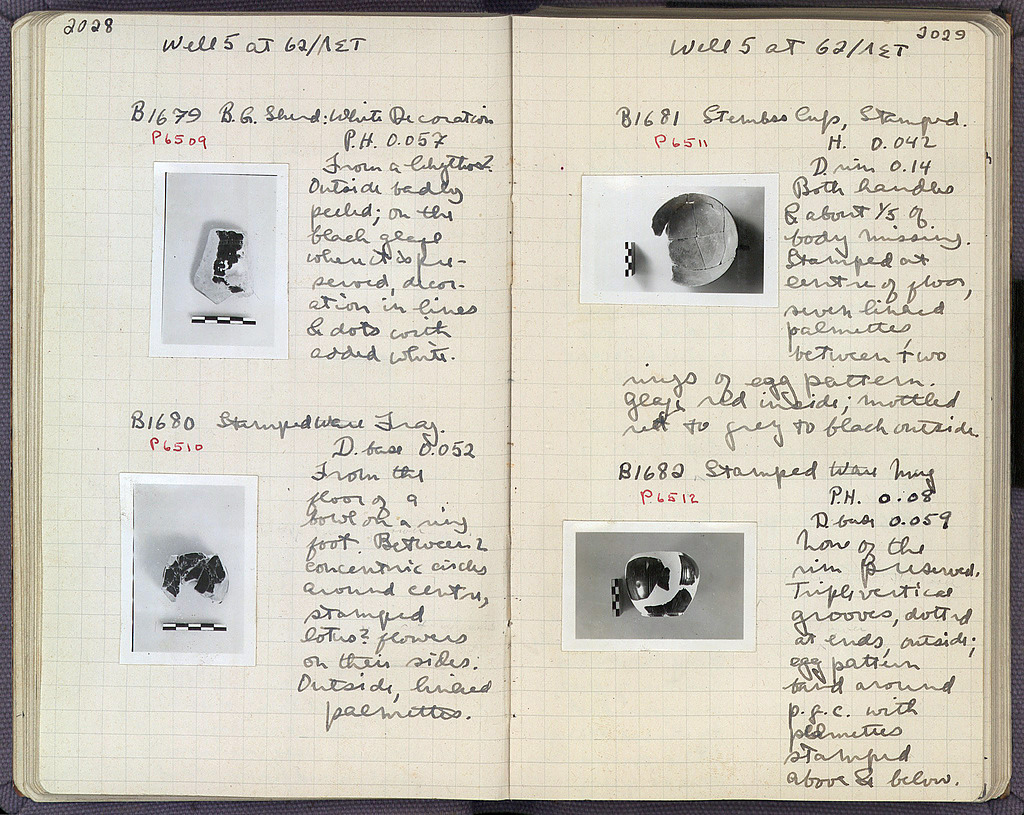 2028
Well 5 at 62/ΛΣΤ
B1679 B.G. Sherd: White Decoration
P6509
P.H. 0.057
From a lekythos?
Outside badly
peeled; on the
black glaze
where it is pre-
served, decor-
ation in lines
& dots with
added white.
B1680 Stamped Ware Frag.
P6510
D. base 0.052
From the
floor of a
bowl on a ring
foot. Between 2
concentric circles
around centre,
stamped
lotus? flowers
on their sides.
Outside, linked
palmettes.
2029
Well 5 at 62/ΛΣΤ
B1681 Stemless Cup, Stamped.
P6511
H. 0.042
D. rim 0.14
Both handles
& about 1/5 of
body missing.
Stamped at
centre of floor,
seven linked
palmettes
between two
rings of egg pattern.
Glaze red inside; mottled
red to grey to black outside.
B1682 Stamped Ware Mug
P6512
P.H. 0.08
D. base 0.059
None of the
rim preserved.
Triple vertical
grooves, dotted
at ends, outside;
egg pattern
band around
p.g.c. with
palmettes
stamped
above & below.